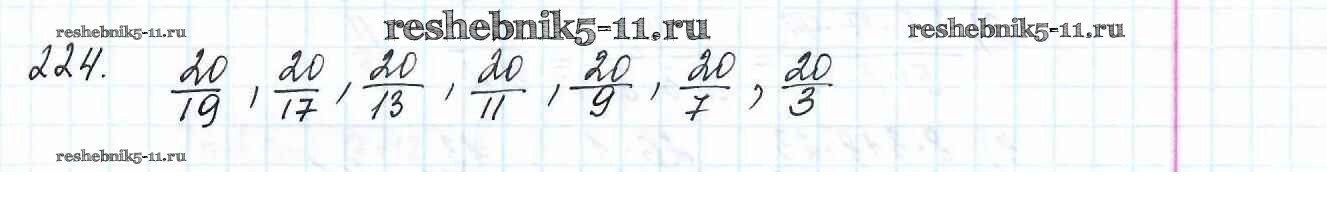 reshebnik5-11.ru reshebnik5-11.ru reshebnik5-11.ru
224. 20/19, 20/17, 20/13, 20/11, 20/9, 20/7, 20/3
reshebnik5-11.ru